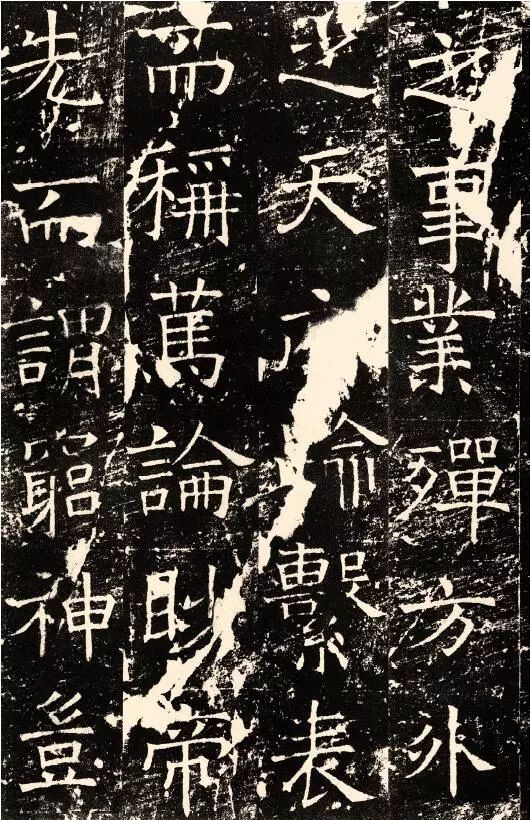 之事業殫方外
之天繫表
而稱篤論眇帝
先而謂窮神豈